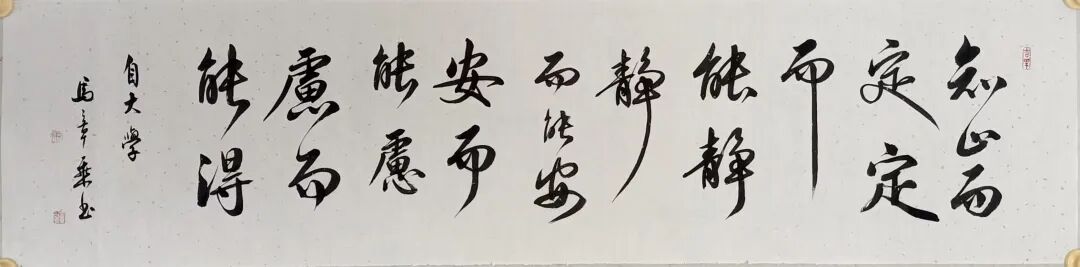 知止而
定定
而
能静
静
而能安
安而
能慮
慮而
能得
自大學
馬章乘书